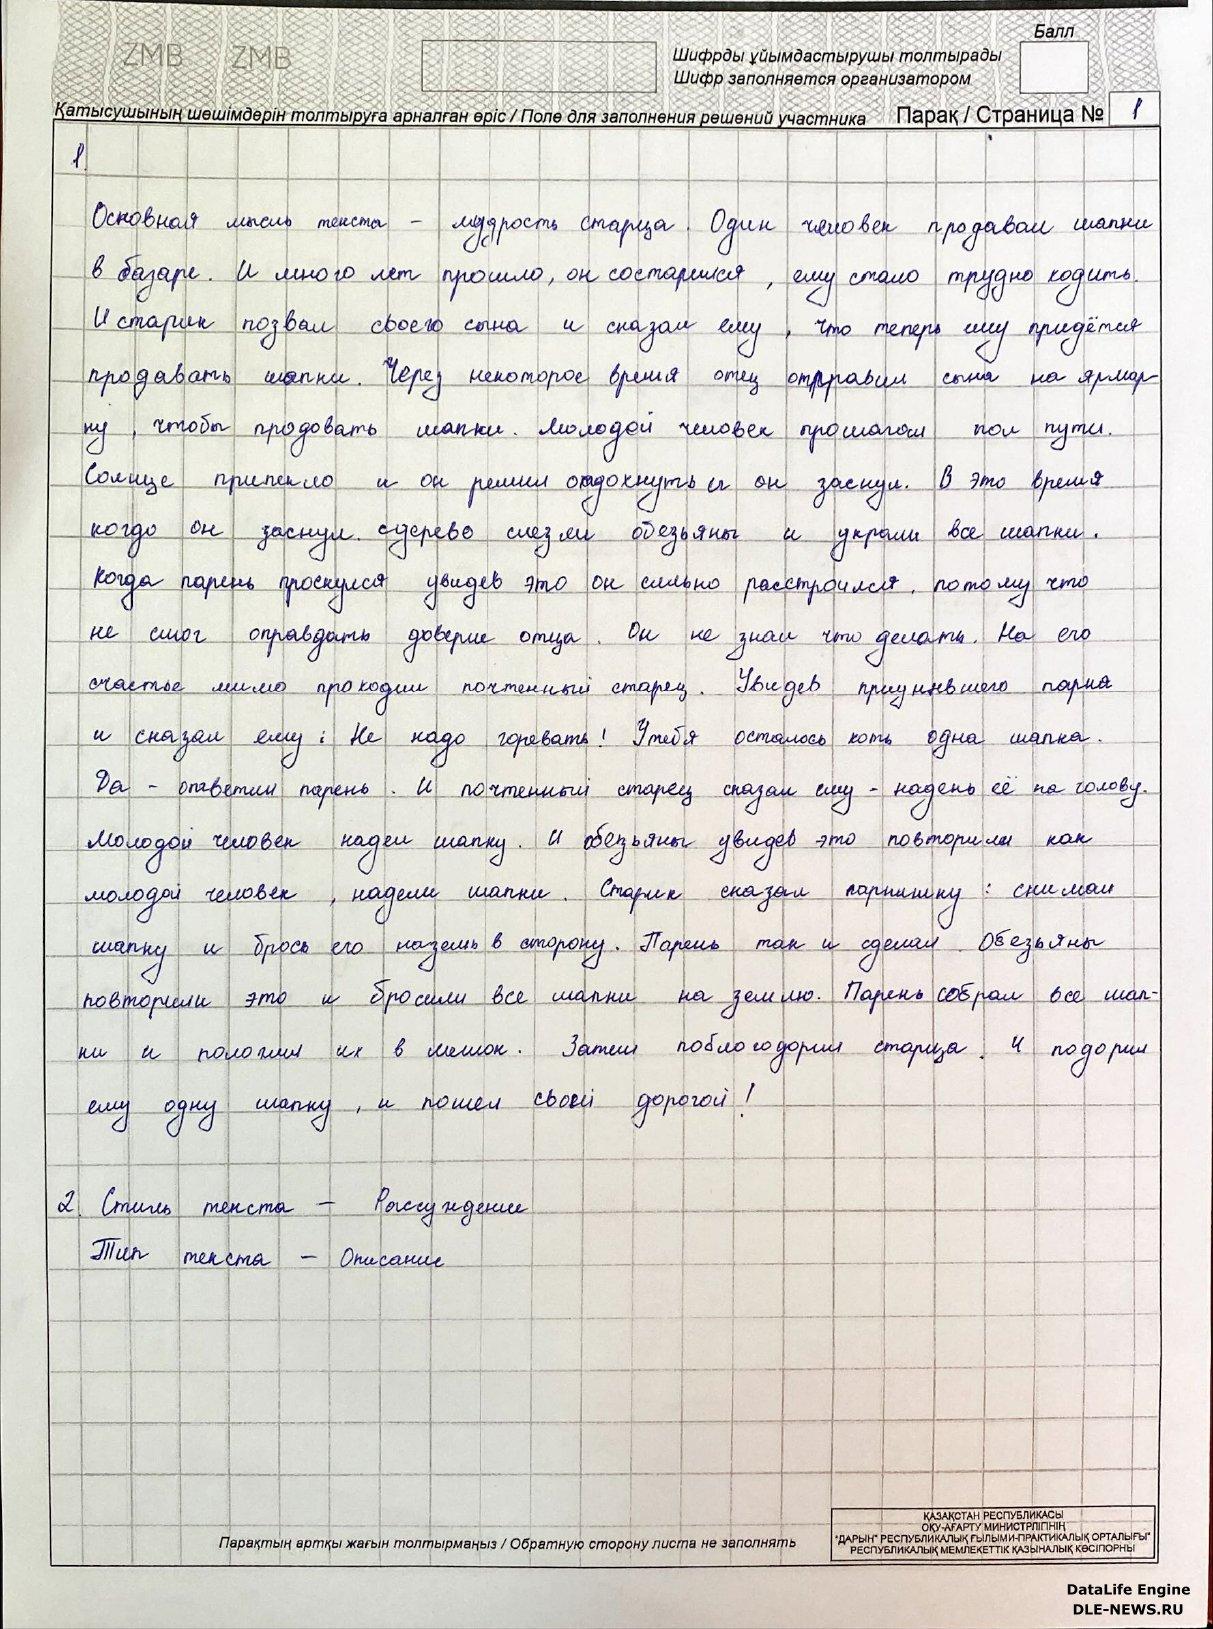 ZMB ZMB
Балл
Шифрды ұйымдастырушы толтырады
Шифр заполняется организатором
Қатысушының шешімдерін толтыруға арналған өріс / Поле для заполнения решений участника Парақ / Страница № 1
1.
Основная мысль текста - мудрость старца. Один человек продавал шапки
в базаре. И много лет прошло, он состарился, ему стало трудно ходить.
И старик позвал своего сына и сказал ему, что теперь ему придётся
продавать шапки. Через некоторое время отец отправил сына на ярмар-
ку, чтобы продовать шапки. Молодой человек прошагал пол пути.
Солнце припекло и он решил отдохнуть и он заснул. В это время
когдо он заснул. с дерево слезли обезьяны и украли все шапки.
Когда парень проснулся увидев это он сильно расстроился, потому что
не смог оправдать доверие отца. Он не знал что делать. На его
счастье мимо проходил почтенный старец. Увидев приунывшего парня
и сказал ему: Не надо горевать! У тебя осталось хоть одна шапка.
Да - ответил парень. И почтенный старец сказал ему - надень её на голову.
Молодой человек надел шапку. И обезьяны увидев это повторили как
молодой человек, надели шапки. Старик сказал парнишку: снимай
шапку и брось его наземь в сторону. Парень так и сделал. Обезьяны
повторили это и бросили все шапки на землю. Парень собрал все шап-
ки и положил их в мешок. Затем поблогодорил старца. И подорил
ему одну шапку, и пошел своей дорогой!
2. Стиль текста - Рассуждение
Тип текста - Описание
Парақтың артқы жағын толтырмаңыз / Обратную сторону листа не заполнять
ҚАЗАҚСТАН РЕСПУБЛИКАСЫ
ОҚУ-АҒАРТУ МИНИСТРЛІГІНІҢ
"ДАРЫН" РЕСПУБЛИКАЛЫҚ ҒЫЛЫМИ-ПРАКТИКАЛЫҚ ОРТАЛЫҒЫ"
РЕСПУБЛИКАЛЫҚ МЕМЛЕКЕТТІК ҚАЗЫНАЛЫҚ КӘСІПОРНЫ
DataLife Engine
DLE-NEWS.RU